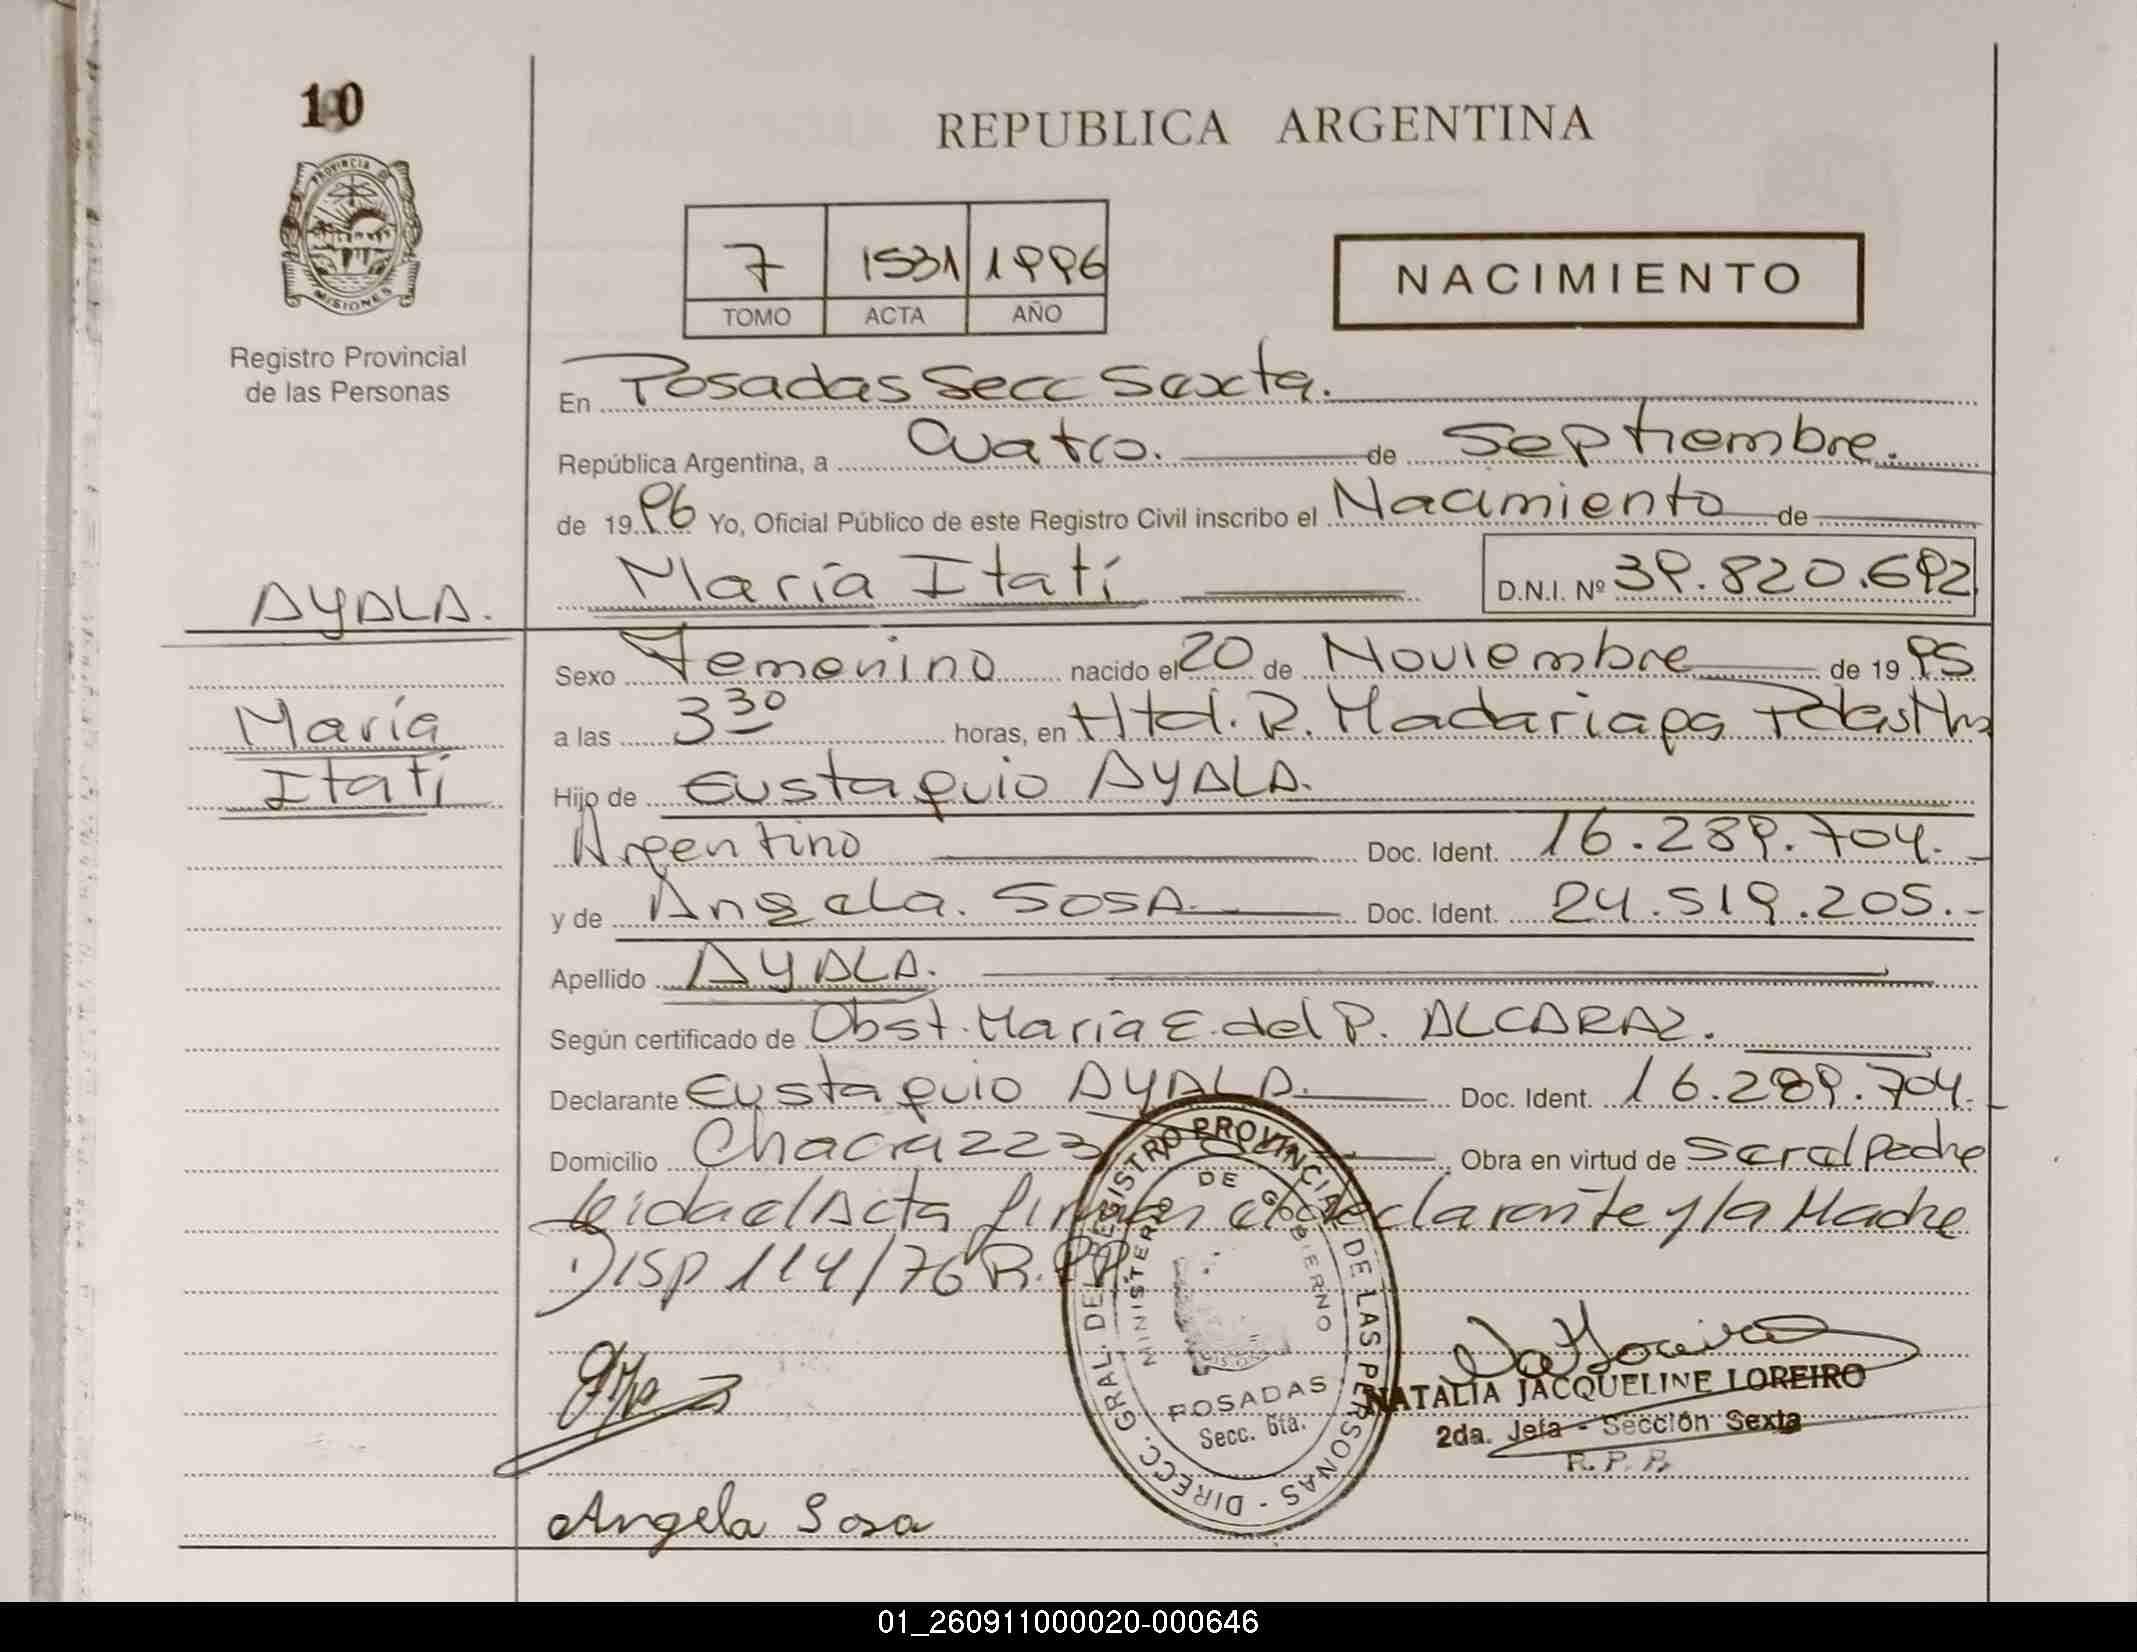 10
PROVINCIA D
MISIONES
Registro Provincial
de las Personas
REPUBLICA ARGENTINA
7 1531 1996
TOMO ACTA AÑO
NACIMIENTO
En Posadas Secc Sexta.
República Argentina, a Cuatro. de Septiembre.
de 1996 Yo, Oficial Público de este Registro Civil inscribo el Nacimiento de
María Itatí D.N.I. Nº 39.820.692
AYALA.
María
Itatí
Sexo Femenino nacido el 20 de Noviembre de 1995
a las 3 30 horas, en Htal. R. Madariaga Pdas Mnes
Hijo de Eustaquio AYALA.
Argentino Doc. Ident. 16.289.704.-
y de Angela. SOSA. Doc. Ident. 24.519.205.-
Apellido AYALA.
Según certificado de Obst. María E. del P. ALCARAZ.
Declarante Eustaquio AYALA. Doc. Ident. 16.289.704.-
Domicilio Chacra 223 Obra en virtud de ser el padre
leida el Acta firman el declarante y la Madre
DISP 114/76 R.PP
DIRECC. GRAL. DEL REGISTRO PROVINCIAL DE LAS PERSONAS -
MINISTERIO DE GOBIERNO
POSADAS
Secc. 6ta.
NATALIA JACQUELINE LOREIRO
2da. Jefa - Sección Sexta
R. P. P.
Angela Sosa
01_260911000020-000646